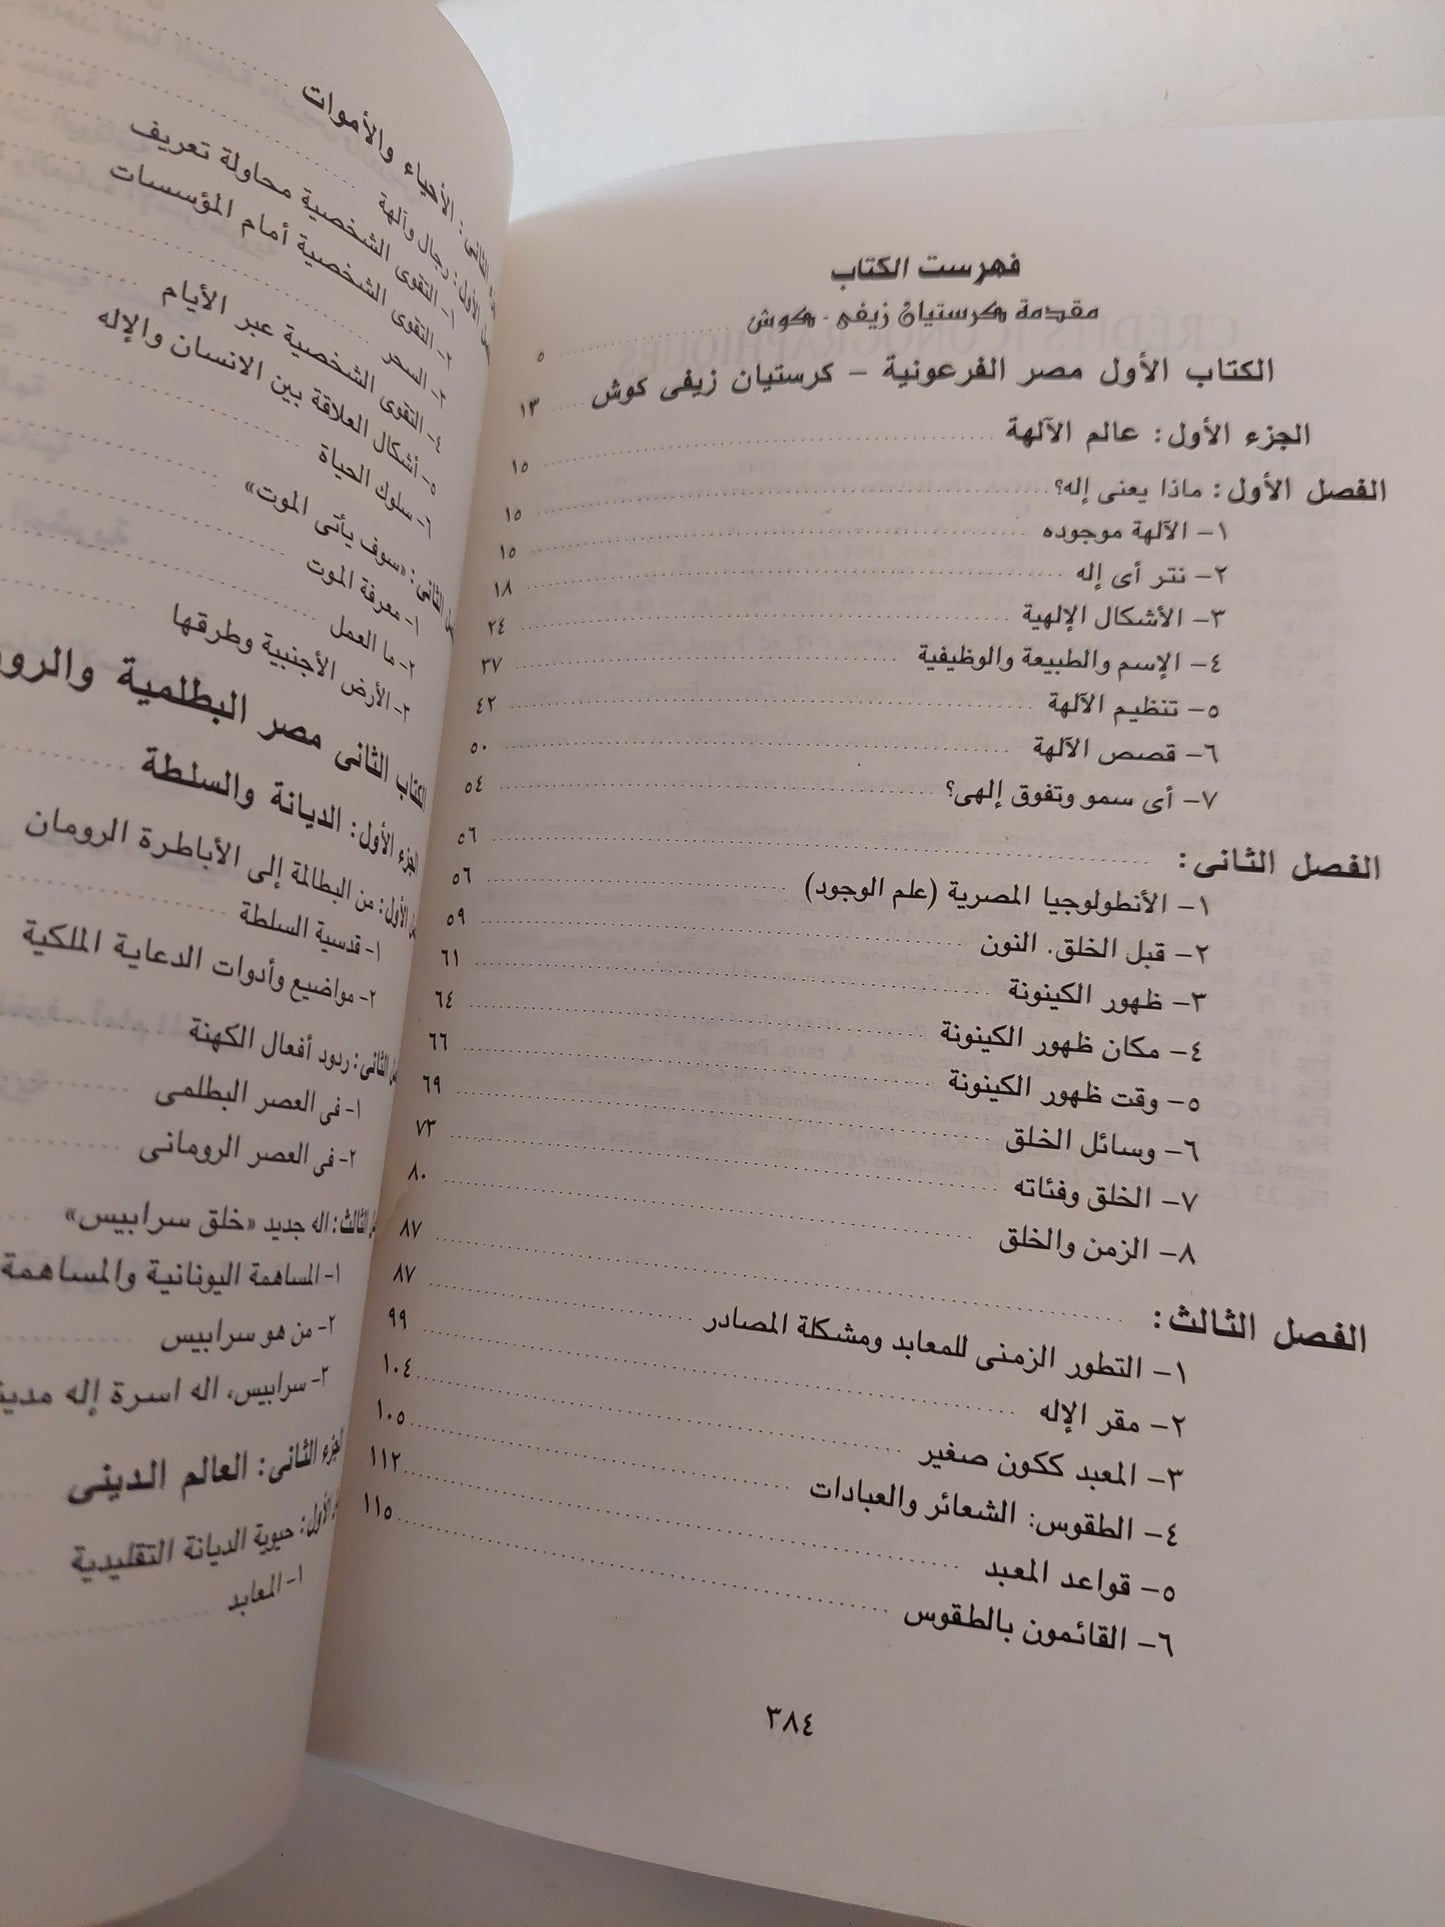 فهرست الكتاب
مقدمة كرستيان زيفى - كوش ٥
الكتاب الأول مصر الفرعونية – كرستيان زيفى كوش ١٣
الجزء الأول: عالم الآلهة ١٥
الفصل الأول: ماذا يعنى إله؟ ١٥
١- الآلهة موجوده ١٥
٢- نتر أى إله ١٨
٣- الأشكال الإلهية ٢٤
٤- الإسم والطبيعة والوظيفية ٣٧
٥- تنظيم الآلهة ٤٢
٦- قصص الآلهة ٥٠
٧- أى سمو وتفوق إلهى؟ ٥٤
الفصل الثانى: ٥٦
١- الأنطولوجيا المصرية (علم الوجود) ٥٦
٢- قبل الخلق. النون ٥٩
٣- ظهور الكينونة ٦١
٤- مكان ظهور الكينونة ٦٤
٥- وقت ظهور الكينونة ٦٦
٦- وسائل الخلق ٦٩
٧- الخلق وفئاته ٧٣
٨- الزمن والخلق ٨٠
الفصل الثالث: ٨٧
١- التطور الزمنى للمعابد ومشكلة المصادر ٨٧
٢- مقر الإله ٩٩
٣- المعبد ككون صغير ١٠٤
٤- الطقوس: الشعائر والعبادات ١٠٥
٥- قواعد المعبد ١١٢
٦- القائمون بالطقوس ١١٥
٣٨٤
الثانى: الأحياء والأموات
الأول: رجال وآلهة
١- التقوى الشخصية محاولة تعريف
٢- التقوى الشخصية أمام المؤسسات
٣- السحر
٤- التقوى الشخصية عبر الأيام
٥- أشكال العلاقة بين الانسان والإله
٦- سلوك الحياة
الثانى: «سوف يأتى الموت»
١- معرفة الموت
٢- ما العمل
٣- الأرض الأجنبية وطرقها
الكتاب الثانى مصر البطلمية
الجزء الأول: الديانة والسلطة
الأول: من البطالمة إلى الأباطرة الرومان
١- قدسية السلطة
٢- مواضيع وأدوات الدعاية الملكية
الثانى: ردود أفعال الكهنة
١- فى العصر البطلمى
٢- فى العصر الرومانى
الثالث: اله جديد «خلق سرابيس»
١- المساهمة اليونانية والمساهمة
٢- من هو سرابيس
٣- سرابيس، اله اسرة إله
الجزء الثانى: العالم الدينى
الأول: حيوية الديانة التقليدية
١- المعابد